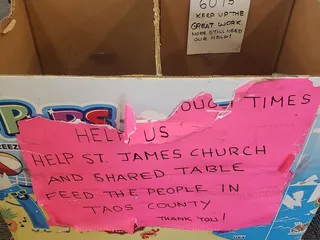 6075
KEEP UP THE
GREAT WORK.
WE STILL NEED
OUR HELP!
TIMES
HELP US
HELP ST. JAMES CHURCH
AND SHARED TABLE
FEED THE PEOPLE IN
TAOS COUNTY
THANK YOU!